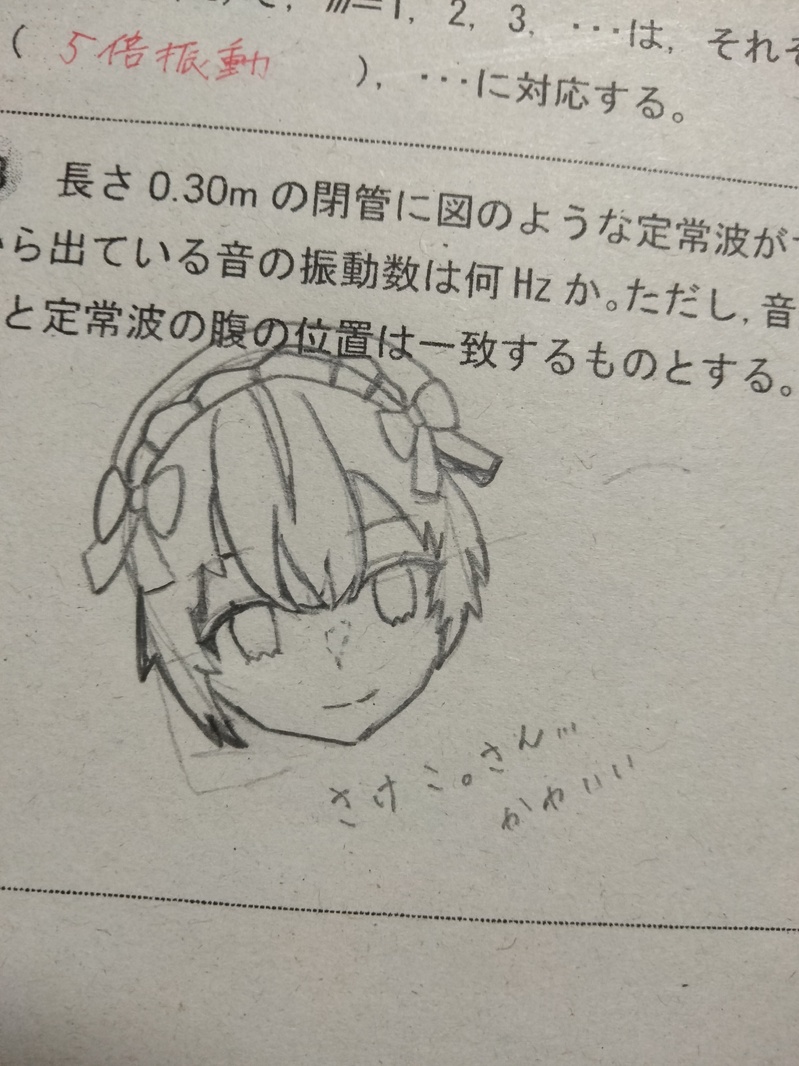 m=1, 2, 3, ···は, それぞ
( 5倍振動 ), ···に対応する。
長さ 0.30m の閉管に図のような定常波が
から出ている音の振動数は何 Hz か。ただし, 音
と定常波の腹の位置は一致するものとする。
さけこ。さん...
かわいい